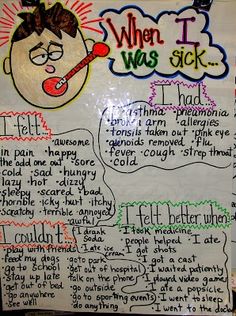 When I
was sick...
I had
asthma ·pneumonia
·broken arm ·allergies
·tonsils taken out ·pink eye
·adenoids removed ·flu
·fever ·cough ·strep throat
·cold
I felt
·awesome
in pain ·happy
the odd one out ·sore
cold ·sad ·hungry
lazy ·hot ·dizzy
·sleepy ·scared ·bad
·horrible ·icky ·hurt ·itchy
·scratchy ·terrible ·annoyed
·awful
I couldn't...
·play with friends
·feed my dog
·go to School
·stay up late
·get out of bed
·go anywhere
·see well
·eat ice cream
·go to park
·get out of hospital
·talk on the phone
·go outside
·go to sporting events
·do anything
I felt better when
·I took medicine
·people helped ·I ate
·I drank
Soda
·I got shots
·I got a cast
·I waited patiently
·I played video games
·I ate a popsicle
·I went to sleep
·I went to the doctor